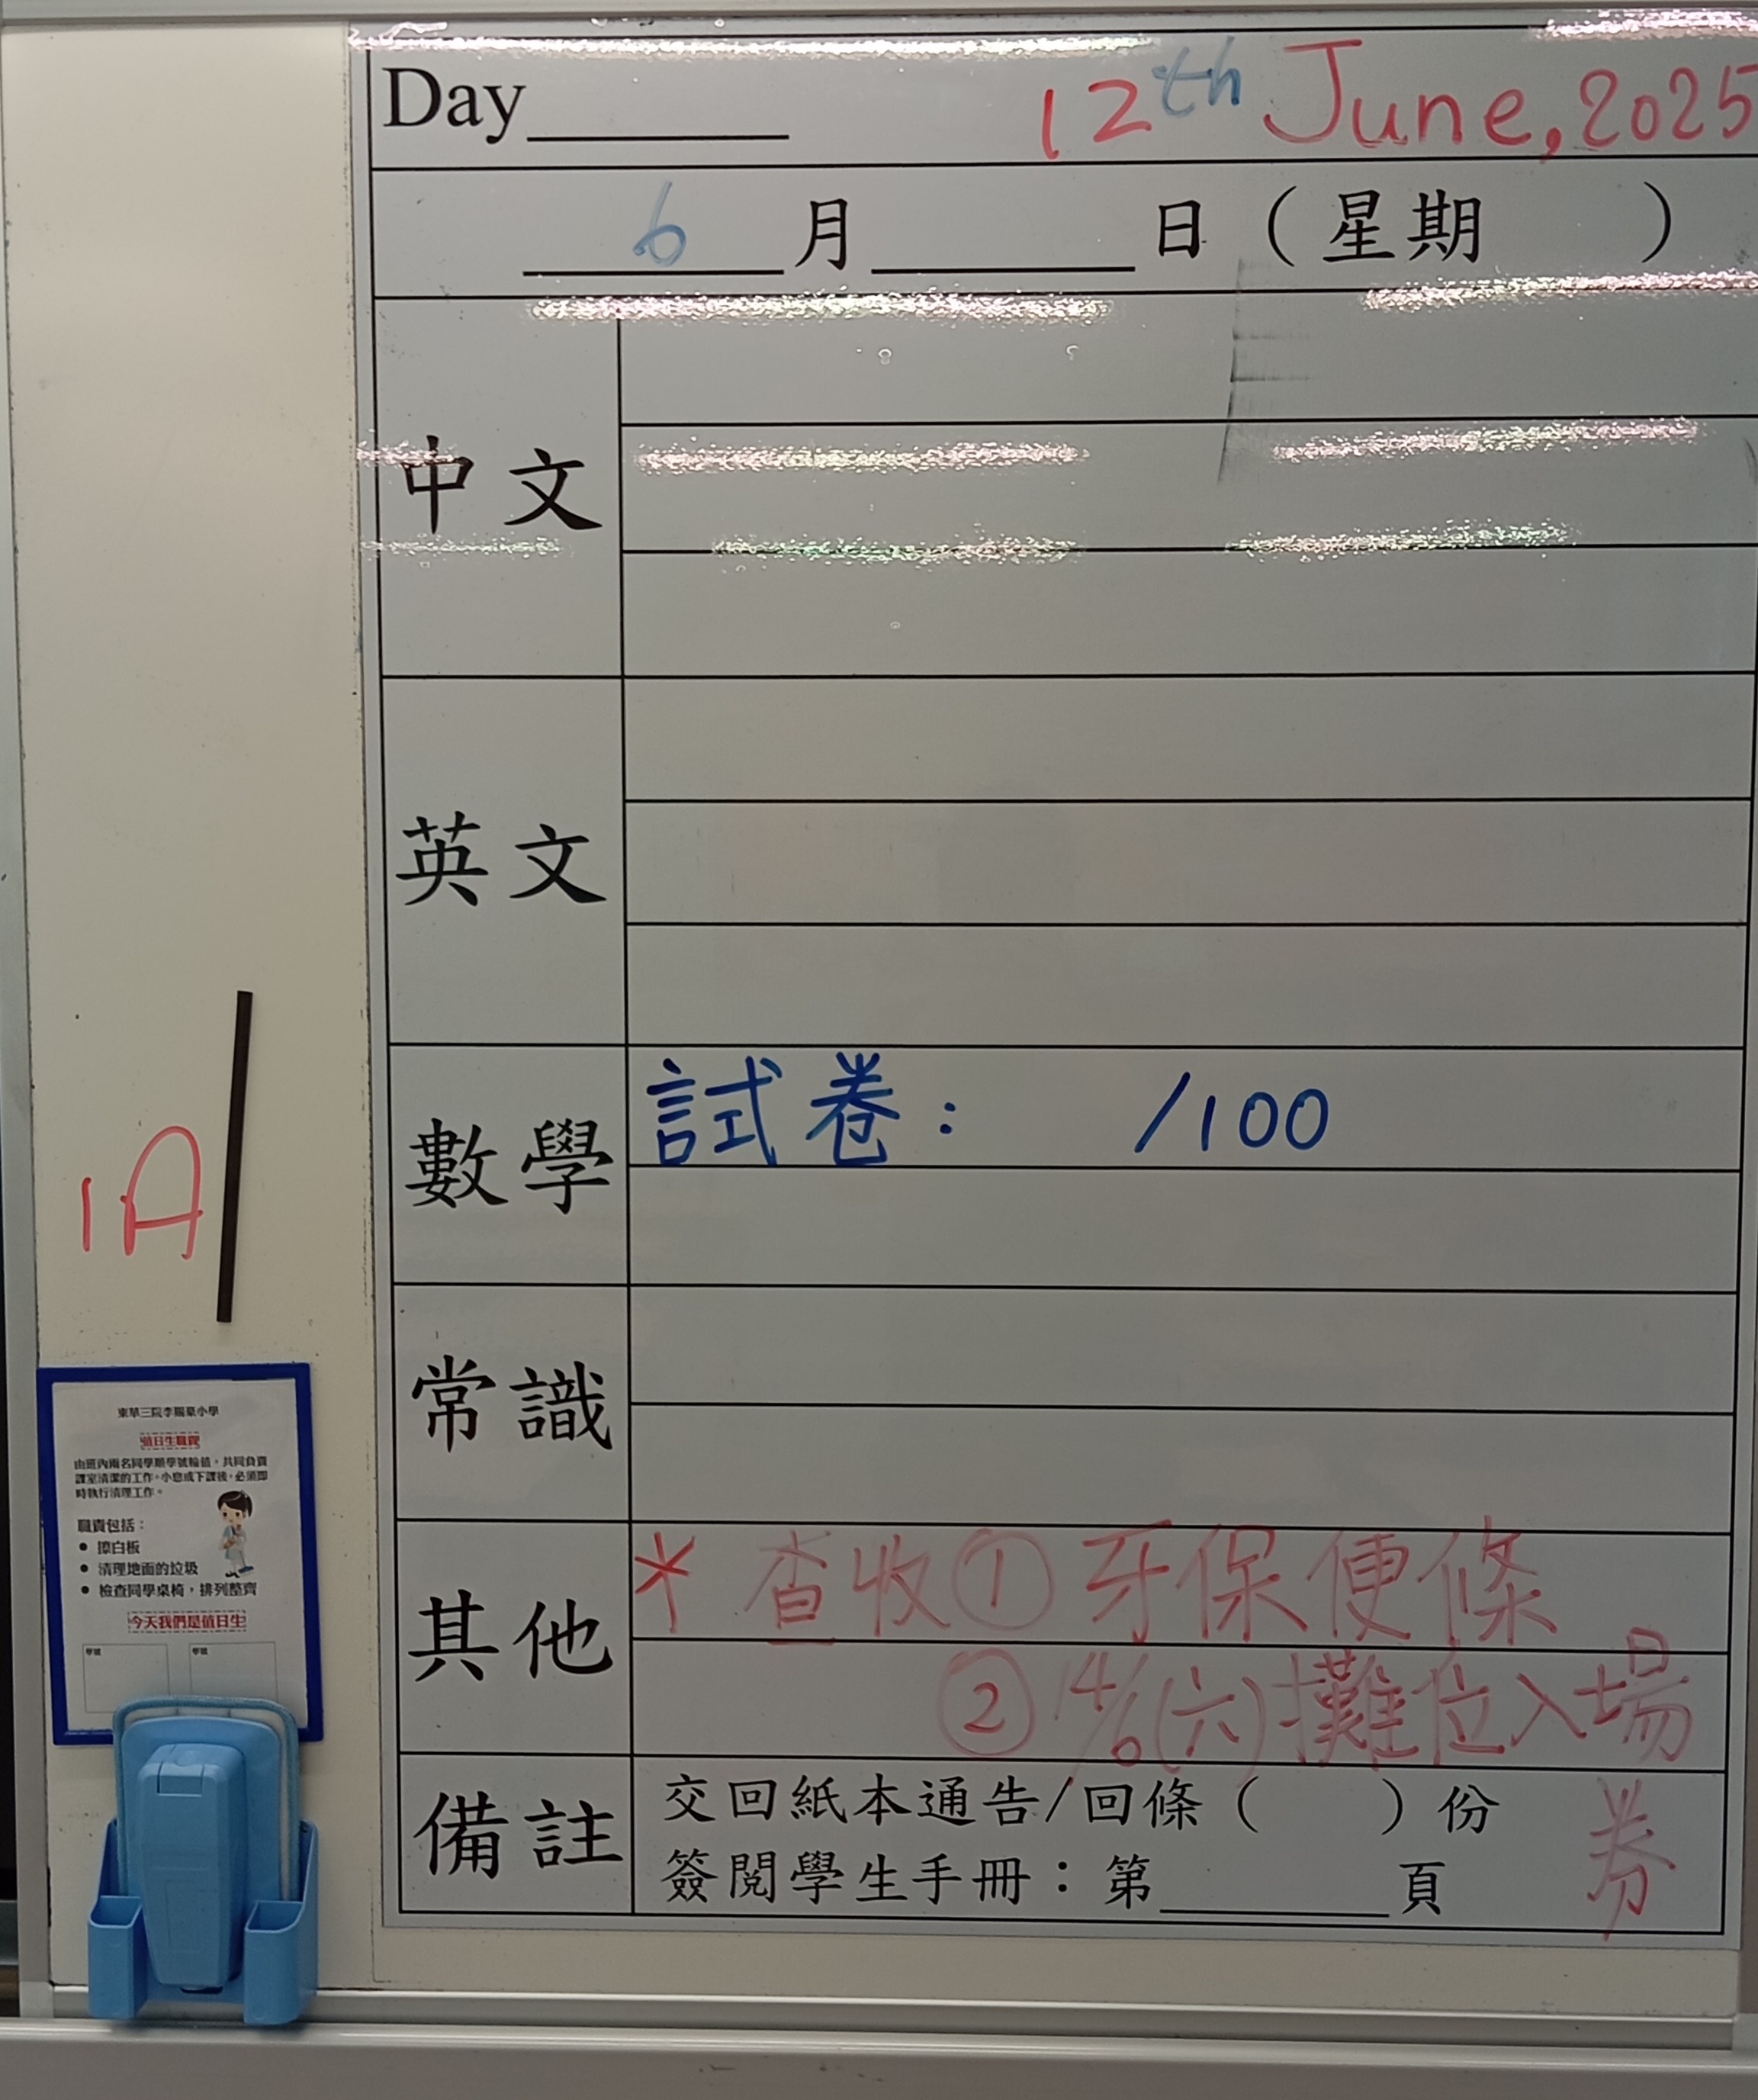 Day______ 12th June, 2025
6月______日（星期　　）
中文
英文
數學 試卷： /100
1A
常識
其他 * 查收① 牙保便條
② 14/6(六)攤位入場
券
備註 交回紙本通告/回條（　　）份
簽閱學生手冊：第______頁
東華三院李賜豪小學
值日生職責
由班內兩名同學順學號輪值，共同負責
課室清潔的工作。小息或下課後，必須即
時執行清理工作。
職責包括：
● 擦白板
● 清理地面的垃圾
● 檢查同學桌椅，排列整齊
今天我們是值日生
學號 學號